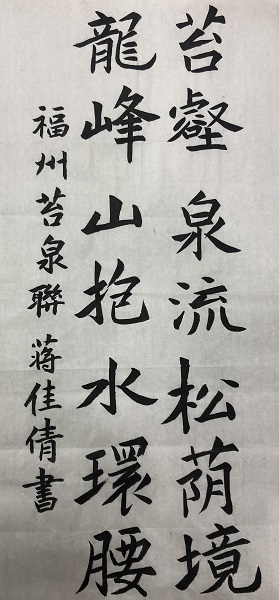 苔壑泉流松荫境
龍峰山抱水環腰
福州苔泉聯 蒋佳倩書